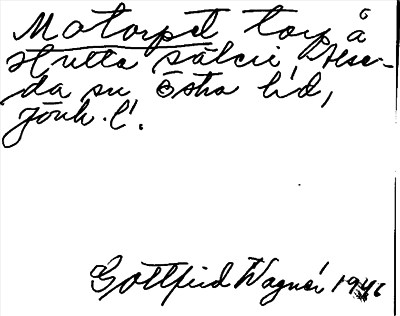 Matorpet torp å
stutta sälcii, Alse-
da su Östra hd,
Jönk. l.
Gottfrid Wagnér 1946